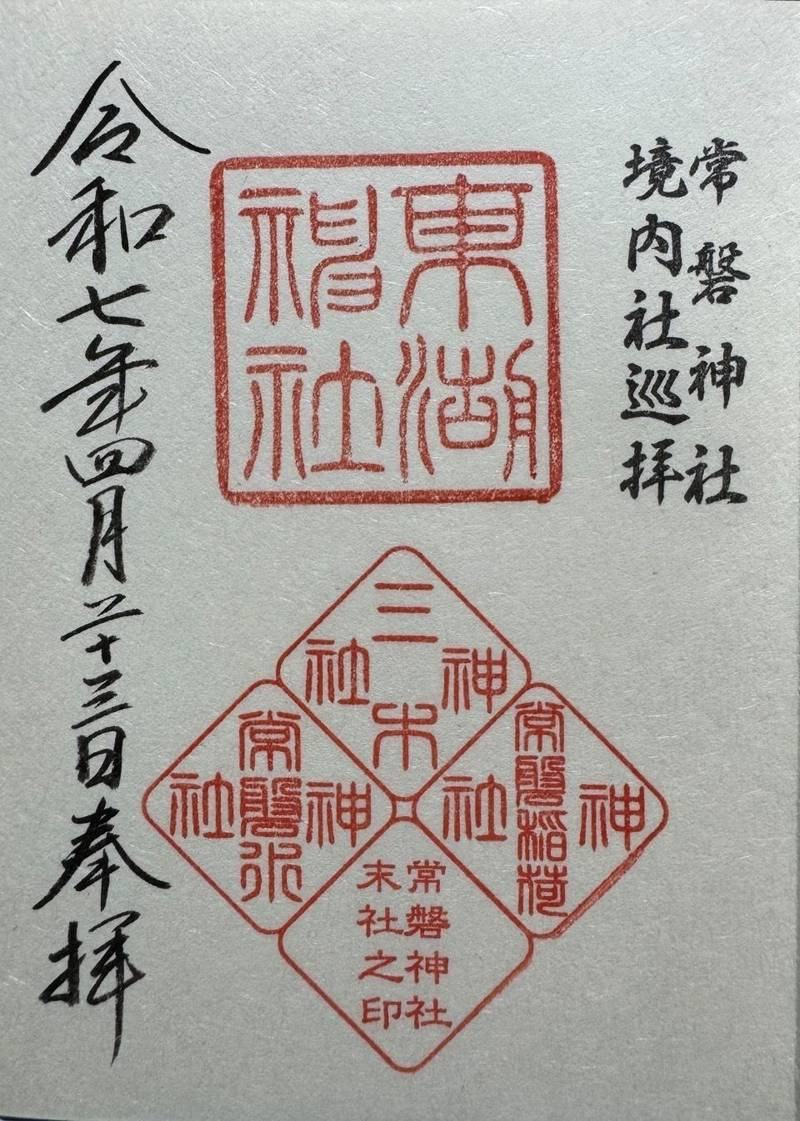 常磐神社
境内社巡拝
東湖
神社
三木
神社
常磐稲荷
神社
常磐水
神社
常磐神社
末社之印
令和七年四月二十三日奉拝